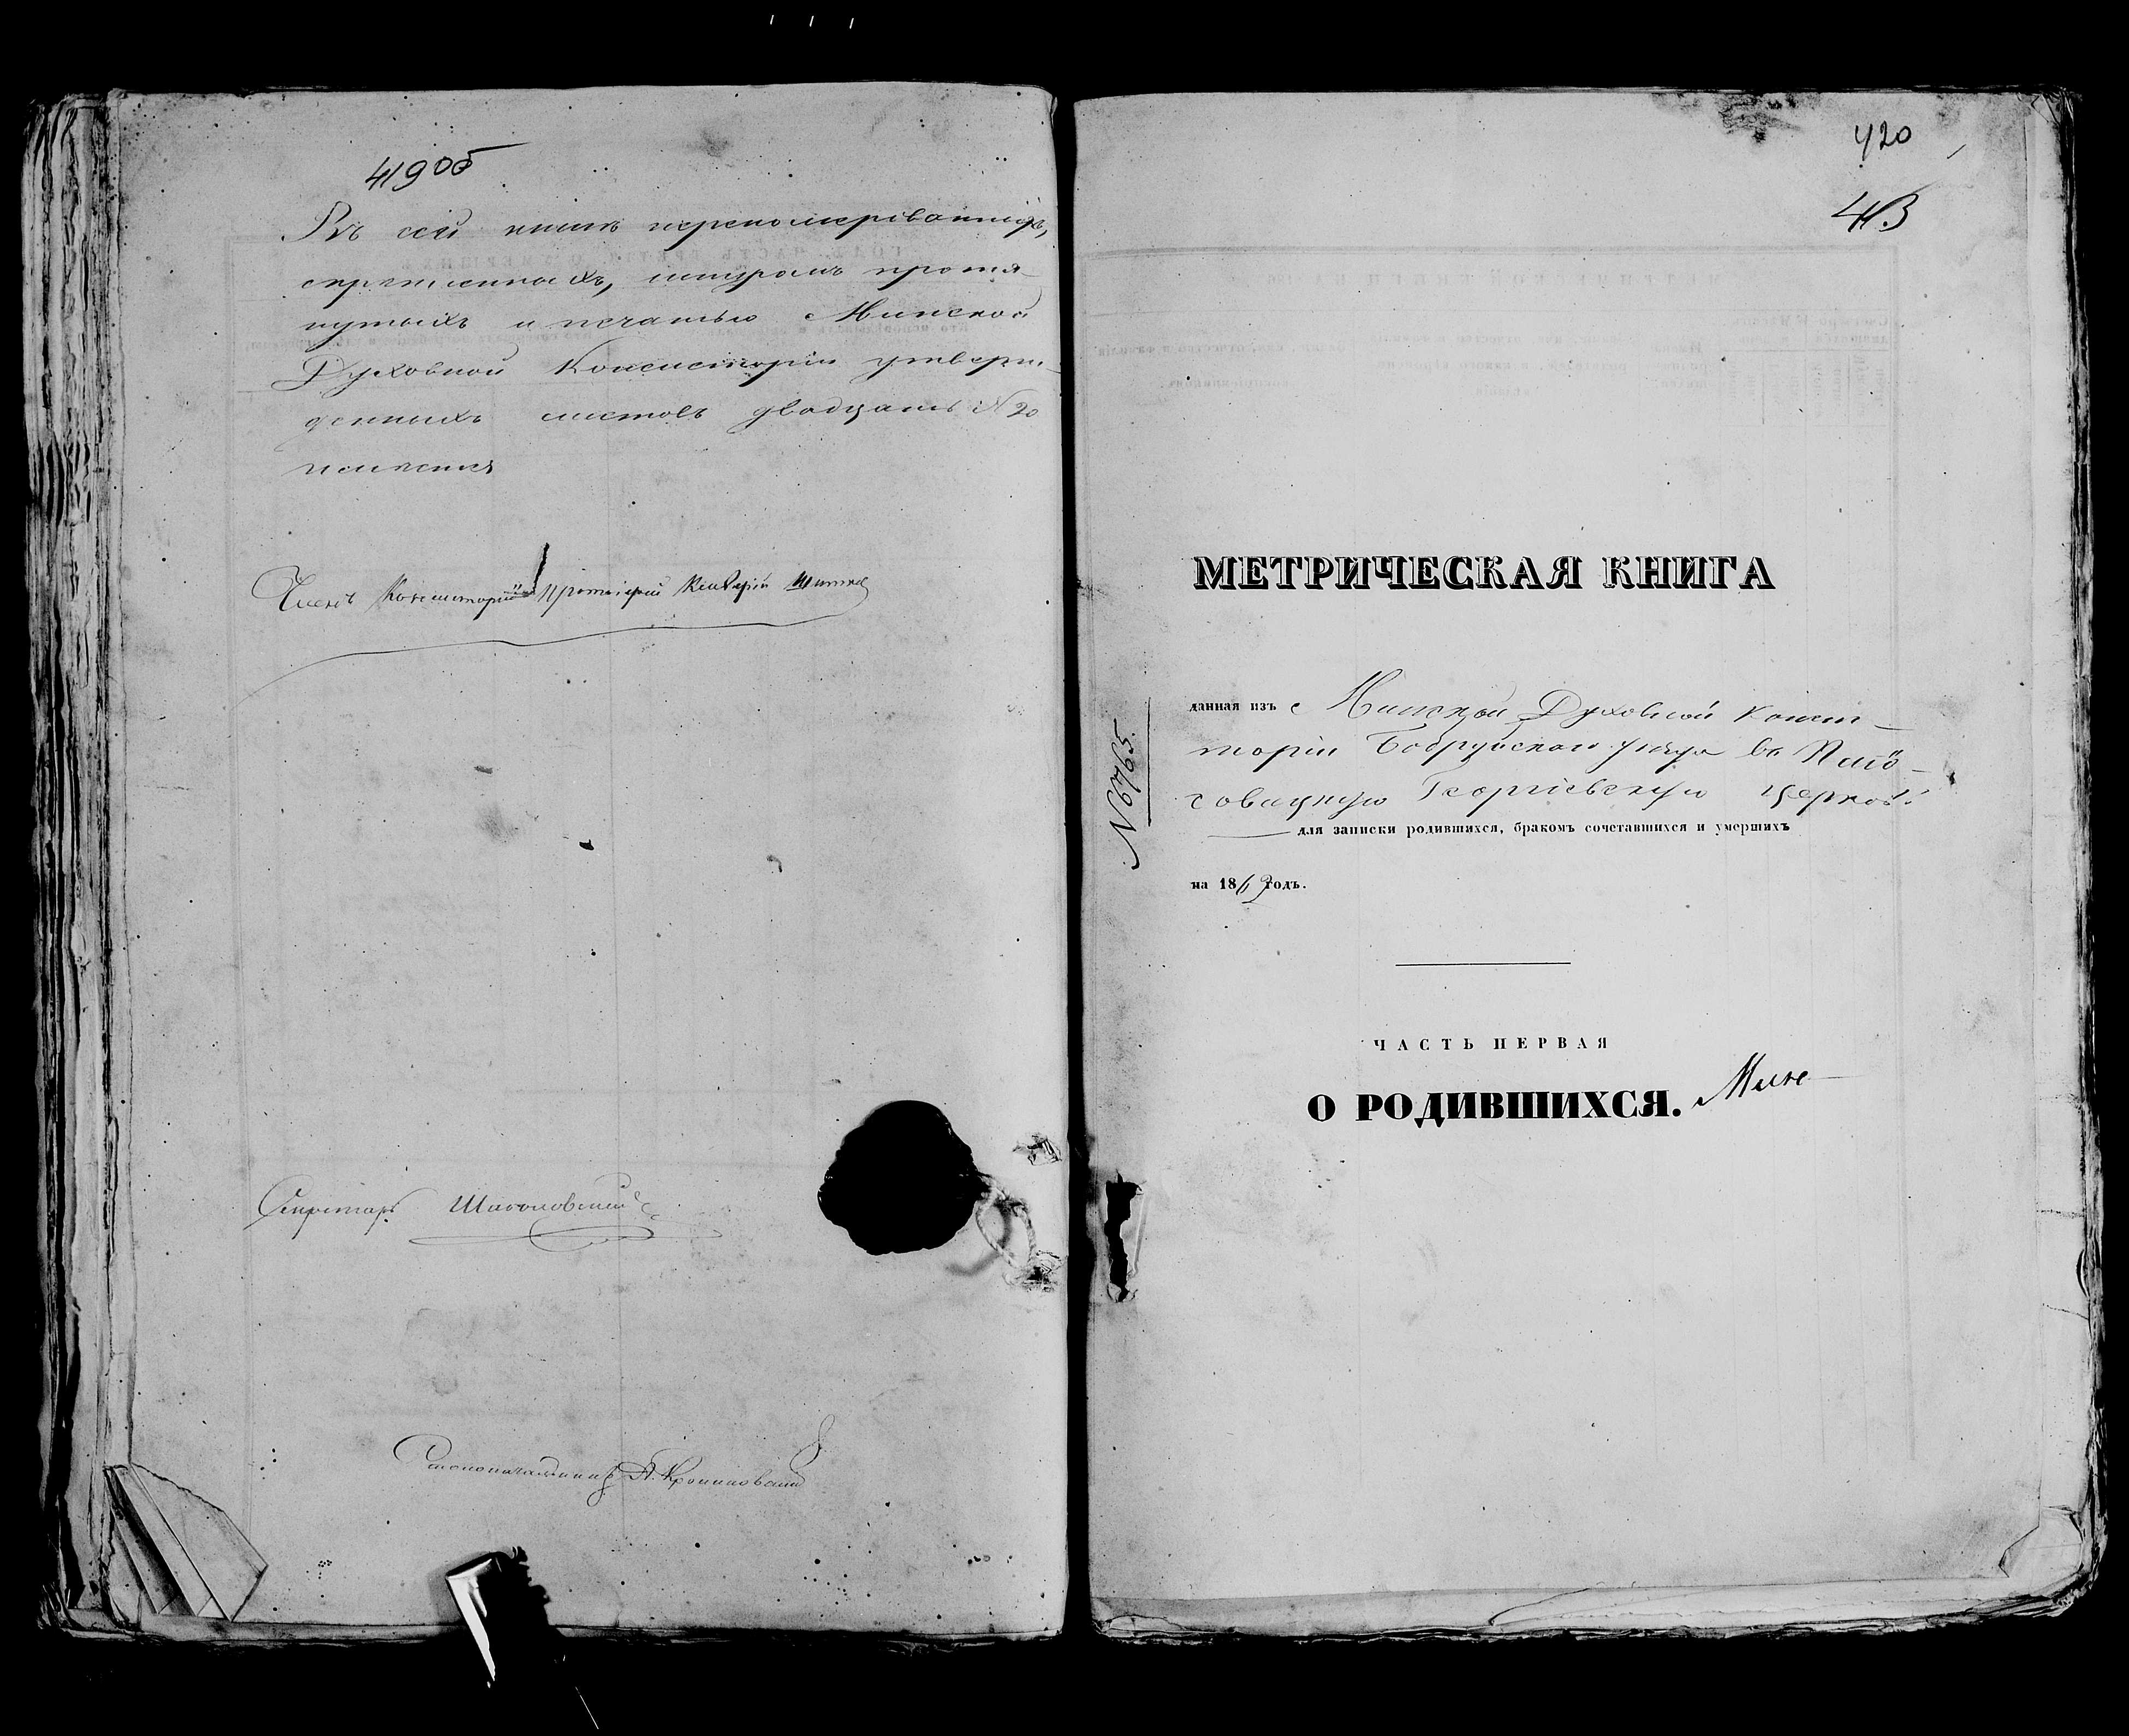 419об
Въ сей книгѣ перенумерованныхъ,
скрѣпленныхъ, шнуромъ протя-
нутыхъ и печатью Минской
Духовной Консисторіи утверж-
денныхъ листовъ двадцать № 20
имѣется
Членъ Консисторіи Протоіерей
Секретарь
Столоначальникъ
420
413
МЕТРИЧЕСКАЯ КНИГА
данная изъ Минской Духовной Консис-
торіи Бобруйскаго уѣзда въ
Георгіевскую Церковь
для записки родившихся, бракомъ сочетавшихся и умершихъ
на 1862 годъ.
№ 6765.
ЧАСТЬ ПЕРВАЯ
О РОДИВШИХСЯ.